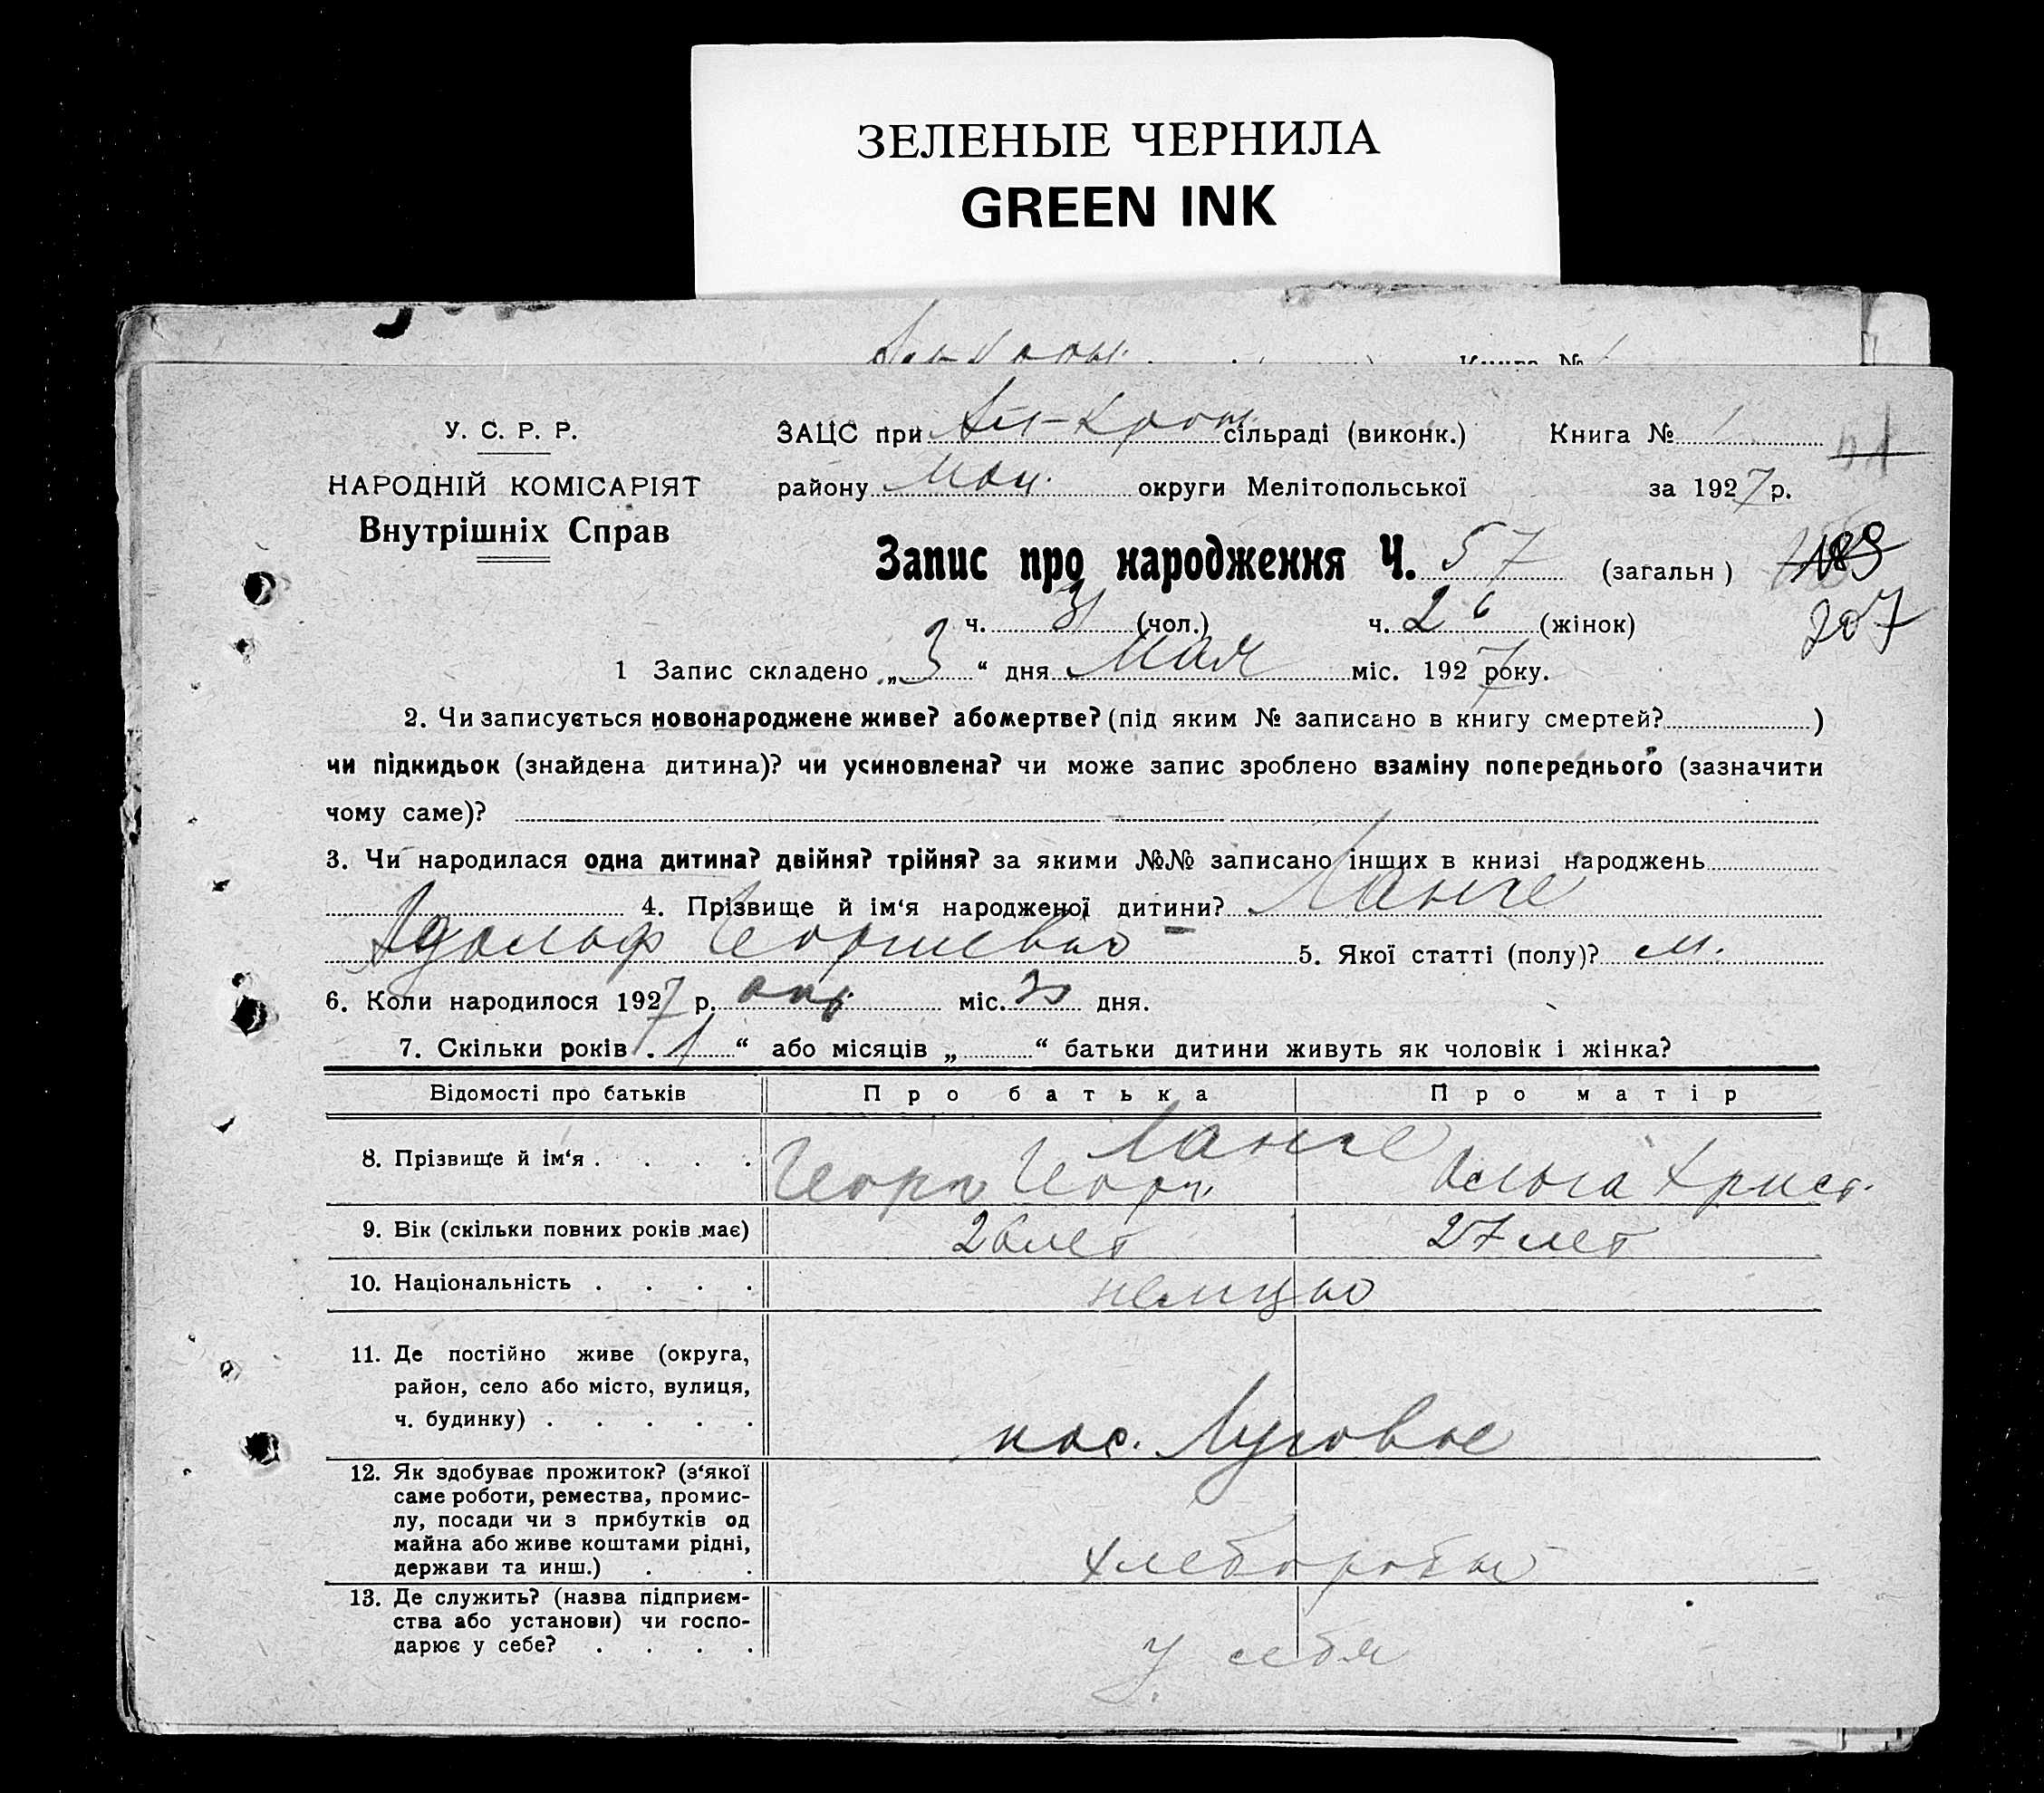 ЗЕЛЕНЫЕ ЧЕРНИЛА
GREEN INK
Книга №
У. С. Р. Р.
НАРОДНІЙ КОМІСАРІЯТ
Внутрішніх Справ
ЗАЦС при сільраді (виконк.) Книга № 1
району Мол. округи Мелітопольської за 1927 р.
Запис про народження Ч. 57 (загальн) 189
ч. 31 (чол.) ч. 26 (жінок) 207
1 Запис складено „3“ дня мая міс. 1927 року.
2. Чи записується новонароджене живе? або мертве? (під яким № записано в книгу смертей? )
чи підкидьок (знайдена дитина)? чи усиновлена? чи може запис зроблено взаміну попереднього (зазначити
чому саме)?
3. Чи народилася одна дитина? двійня? трійня? за якими №№ записано інших в книзі народжень
4. Прізвище й ім‘я народженої дитини? Ланге
Адольф Георгиевич 5. Якої статті (полу)? м.
6. Коли народилося 1927 р. апр. міс. 30 дня.
7. Скільки років „1“ або місяців „ “ батьки дитини живуть як чоловік і жінка?
Відомості про батьків Про батька Про матір
8. Прізвище й ім‘я . . . . Ланге
Георг Георг. Ольга Христ.
9. Вік (скільки повних років має) 26 лет 27 лет
10. Національність . . . . немцы
11. Де постійно живе (округа,
район, село або місто, вулиця,
ч. будинку) . . . . . пос. Луговое
12. Як здобуває прожиток? (з‘якої
саме роботи, ремества, промис-
лу, посади чи з прибутків од
майна або живе коштами рідні,
держави та инш.) . . . хлеборобы
13. Де служить? (назва підприєм-
ства або установи) чи госпо-
дарює у себе? . . . . У себя